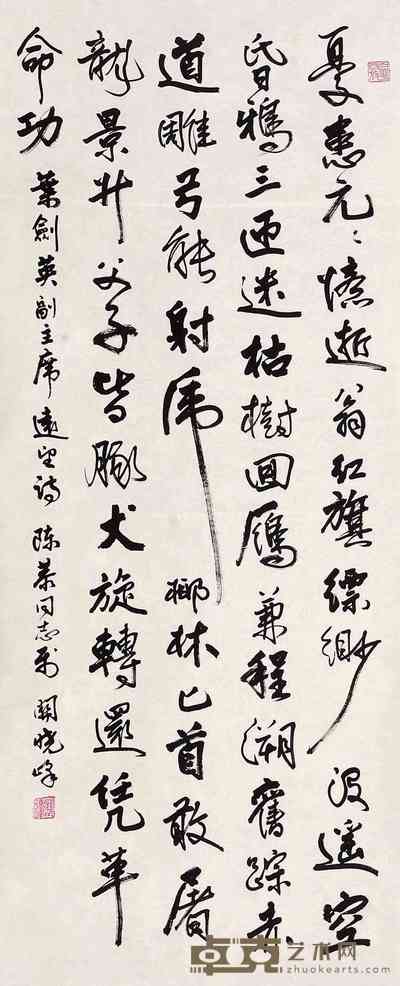 憂患元々憶逝翁红旗縹緲没遥空
昏鴉三匝迷枯樹回雁兼程溯舊踪赤
道雕弓能射虎椰林匕首敢屠
龍景升父子皆豚犬旋轉還凭革
命功 葉劍英副主席遠望詩 陈同志 關曉峰
卓克艺术网
zhuokearts.com